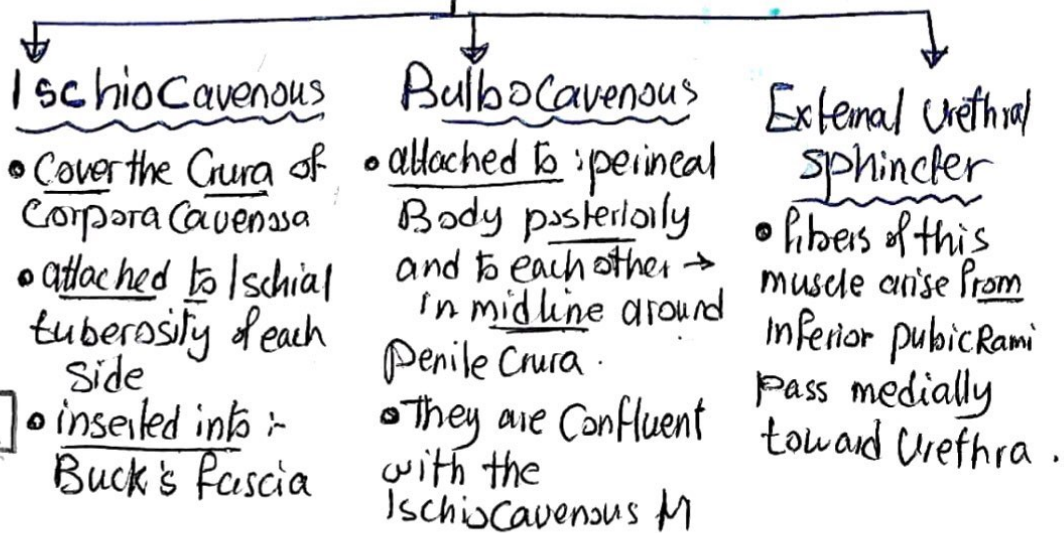 Ischiocavenous
• Cover the Crura of
Corpora Cavenosa
• attached to Ischial
tuberosity of each
Side
• inserted into :-
Buck's fascia
Bulbocavenous
• attached to : perineal
Body posteriorly
and to each other →
in midline around
Penile Crura .
• They are Confluent
with the
Ischiocavenous M
External Urethral
Sphincter
• fibers of this
muscle arise from
inferior pubic Rami
pass medially
toward Urethra .